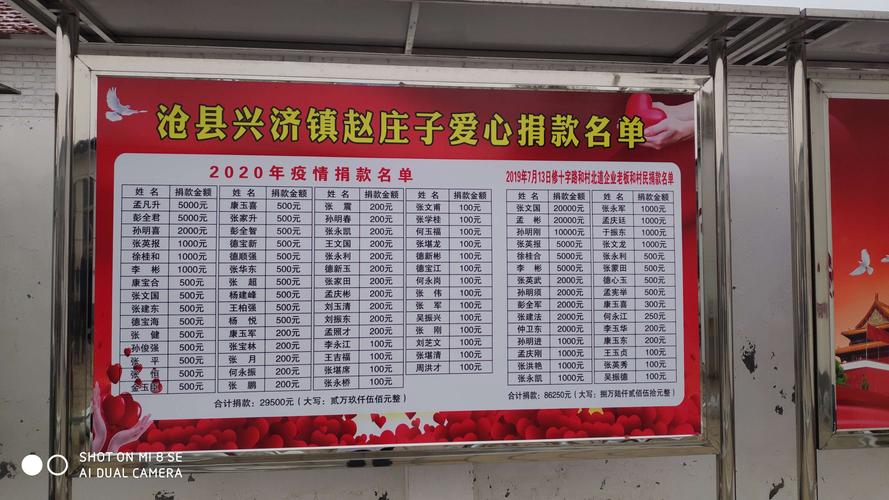 沧县兴济镇赵庄子爱心捐款名单
2020年疫情捐款名单
姓 名 捐款金额 姓 名 捐款金额 姓 名 捐款金额 姓 名 捐款金额
孟凡升 5000元 康玉喜 500元 张 震 200元 张文甫 100元
彭全君 5000元 张家升 500元 孙明春 200元 张学桂 100元
孙明喜 2000元 彭全智 500元 张永凯 200元 何玉福 100元
张英报 1000元 德宝新 500元 王文国 200元 张堪龙 100元
徐桂和 1000元 德顺强 500元 张永利 200元 德新彬 100元
李 彬 1000元 张华东 500元 德新玉 200元 德宝江 100元
康宝合 500元 张 超 500元 张家田 200元 何永岗 100元
张文国 500元 杨建峰 500元 孟庆彬 200元 张 伟 100元
张建东 500元 王柏强 500元 刘玉清 200元 张 军 100元
德宝海 500元 杨 悦 500元 刘振东 200元 吴振兴 100元
张 健 500元 康玉军 200元 孟照才 200元 张 刚 100元
孙俊强 500元 张宝林 200元 李永江 100元 刘芝文 100元
张 平 500元 张 月 200元 王吉福 100元 张堪清 100元
张 恒 500元 何永振 200元 张堪席 100元 周洪才 100元
金玉 500元 张 鹏 200元 张永桥 100元
合计捐款：29500元（大写：贰万玖仟伍佰元整）
2019年7月13日修十字路和村北道企业老板和村民捐款名单
姓 名 捐款金额 姓 名 捐款金额
张文国 20000元 张永军 1000元
孟 彬 20000元 孟庆廷 1000元
孙明刚 10000元 于振东 1000元
张英报 5000元 张文龙 1000元
徐桂合 5000元 张永利 500元
李 彬 5000元 张蒙田 500元
张英武 2000元 德心玉 500元
孙明须 2000元 孟宪举 500元
彭全军 2000元 康玉喜 300元
张建法 2000元 何永江 250元
仲卫东 2000元 李玉华 200元
孙明进 1000元 康玉东 200元
孟庆刚 1000元 王玉贞 100元
张洪艳 1000元 张英秀 100元
张永凯 1000元 吴振德 100元
合计捐款：86250元（大写：捌万陆仟贰佰伍拾元整）
SHOT ON MI 8 SE
AI DUAL CAMERA